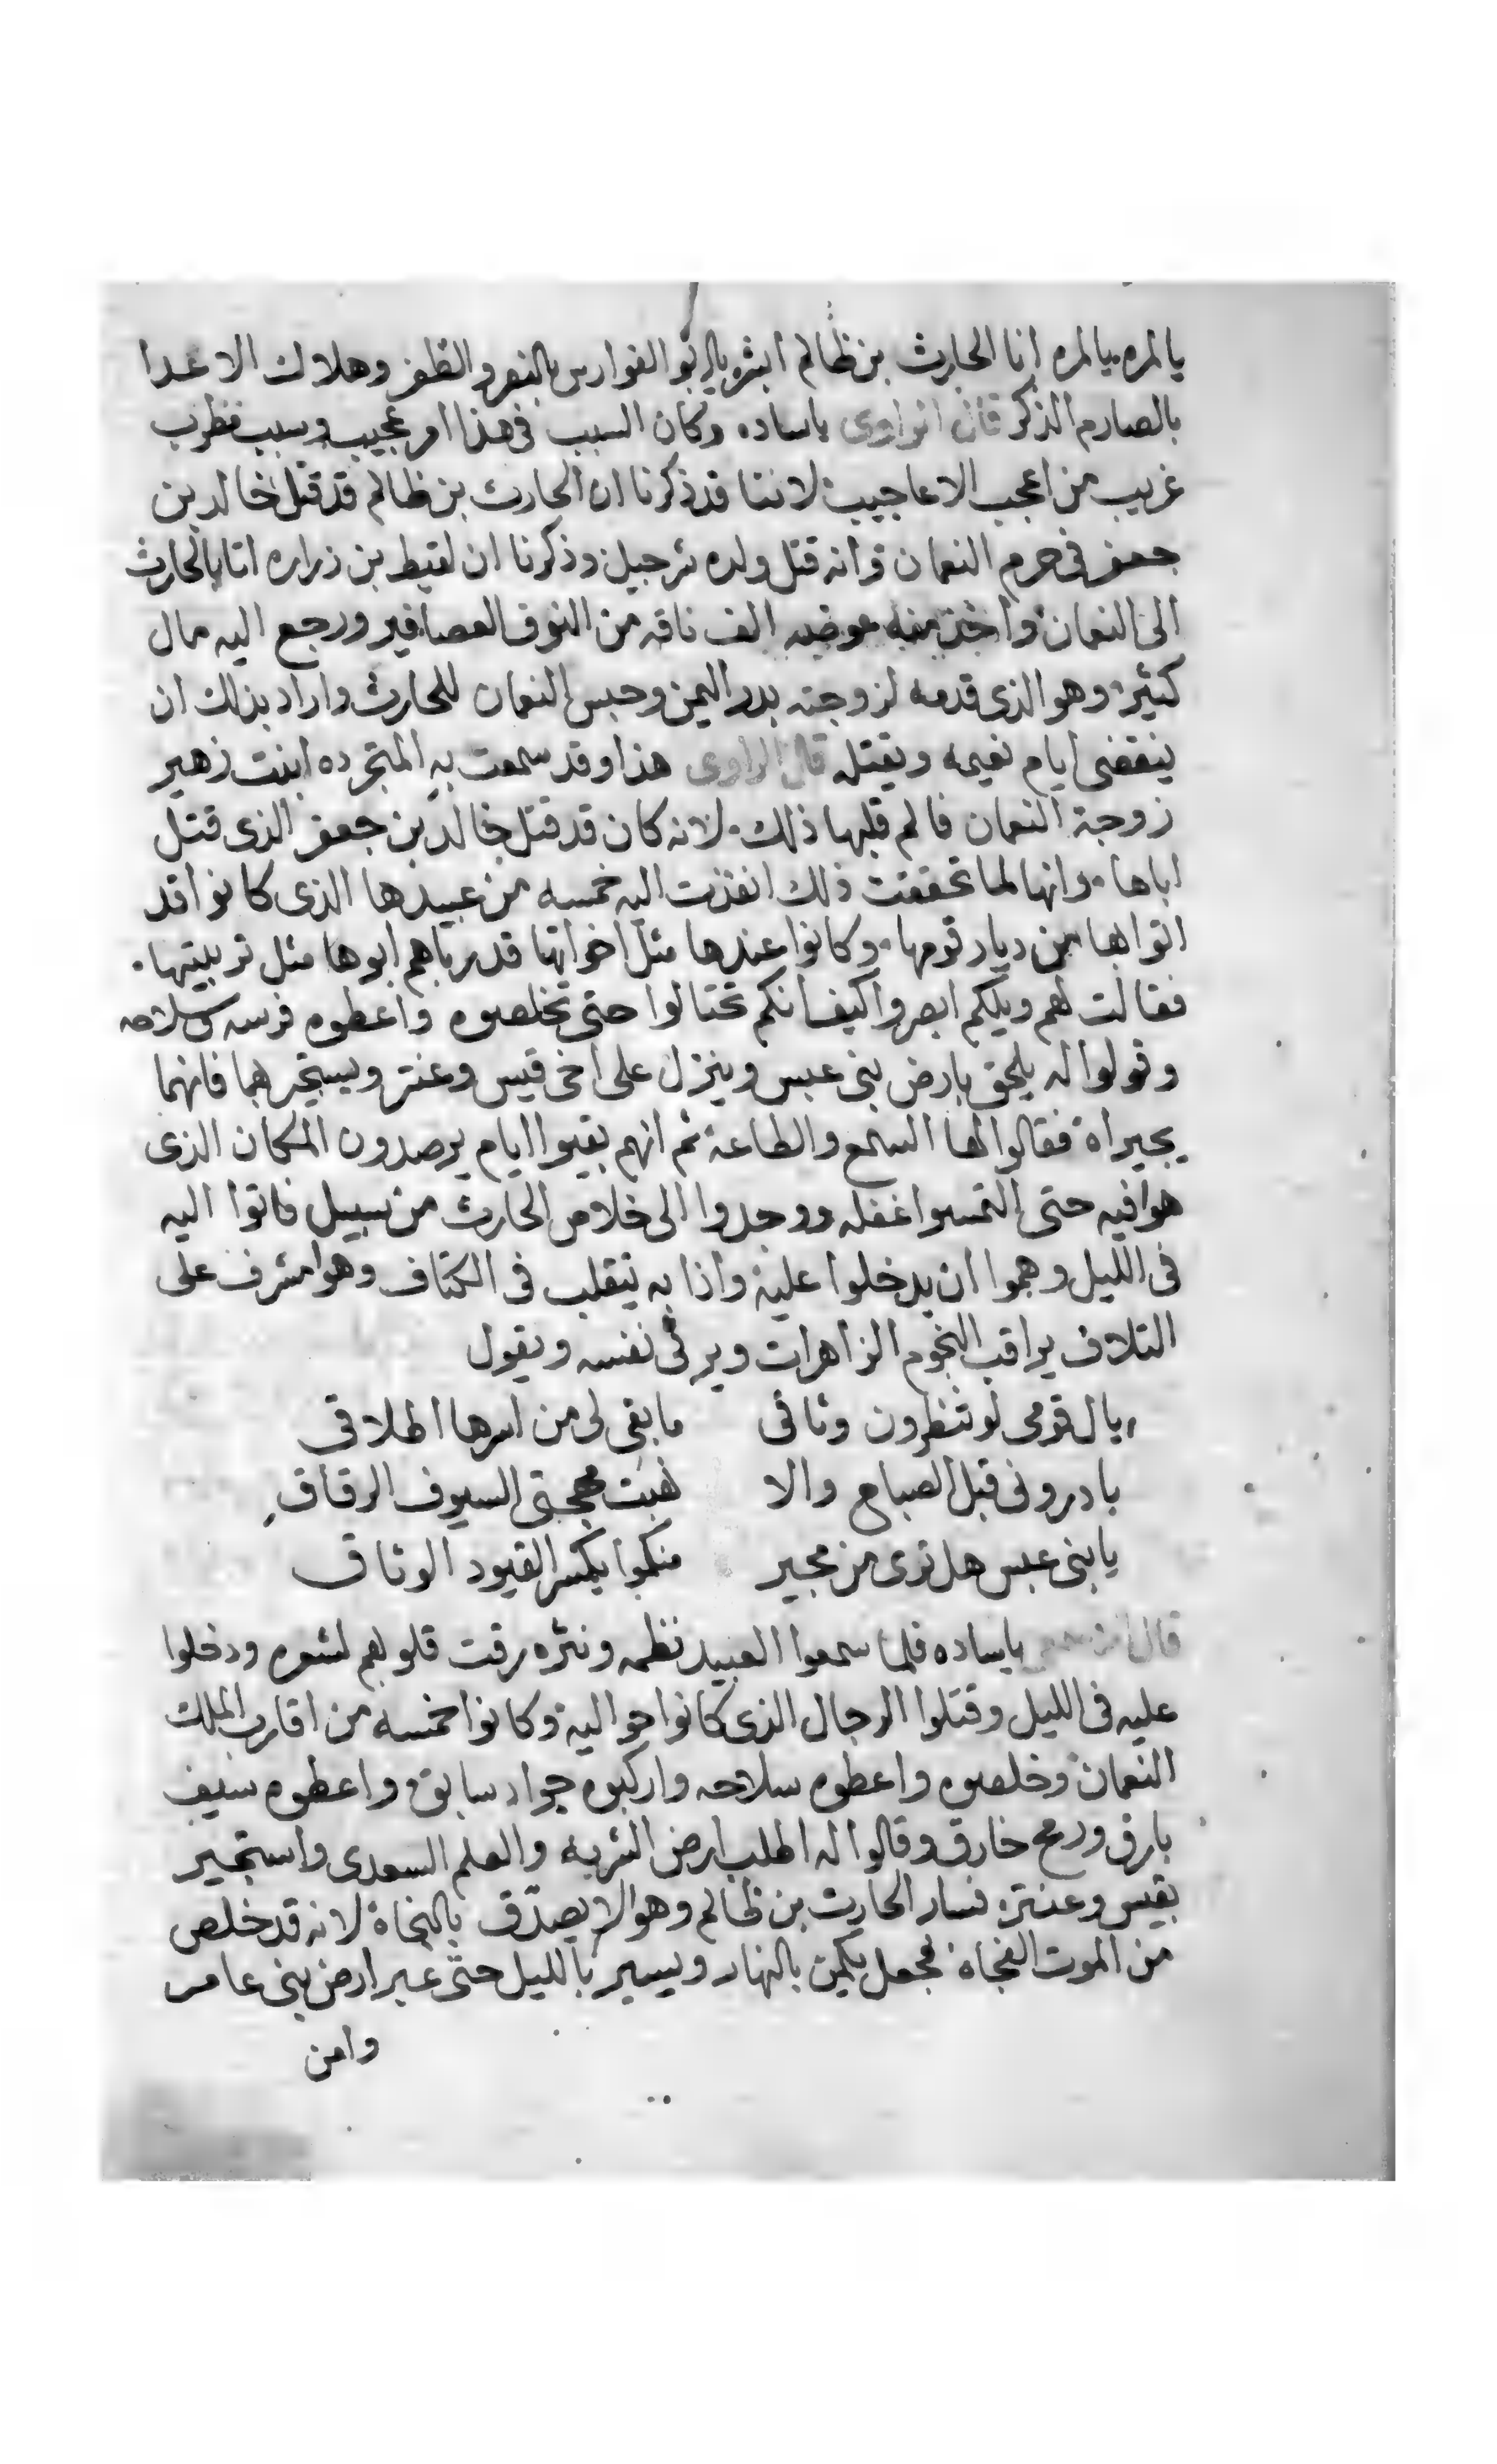 يالمره يالمره انا الحارث بن ظالم ابشر يابو الفوارس بالنصر والظفر وهلاك الاعدا
بالصارم الذكر قال الراوى ياساده وكان السبب فى هذا امر عجيب وسبب مطرب
غريب من اعجب الاعاجيب لاننا قد ذكرنا ان الحارث بن ظالم قد قتل خالد بن
جعفر فى حرم النعمان وانه قتل ولده شرحبيل وذكرنا ان لقيط بن زراره اتا بالحارث
الى النعمان واخذ منه عوضه الف ناقه من النوق العصافير ورجع اليه مال
كثير وهو الذى قدمه لزوجته بدر اليمن وحبس النعمان للحارث واراد بذلك ان
ينقضى ايام نعيمه ويقتله قال الراوى هذا وقد سمعت به المتجرده ابنت زهير
زوجة النعمان فالم قلبها ذلك لانه كان قد قتل خالد بن جعفر الذى قتل
اباها وانها لما تحققت ذلك انفذت اليه خمسه من عبيدها الذى كانوا قد
اتوا بها من ديار قومها وكانوا عندها مثل اخواتها قد رباهم ابوها مثل تربيتها
فقالت لهم ويلكم ابصروا كيف انكم تحتالوا حتى تخلصوه واعطوه فرسه وسلاحه
وقولوا له يلحق بارض بنى عبس وينزل على اخى قيس وعنتر ويستجير بهما فانهما
يجيراه فقالوا لها السمع والطاعه ثم انهم بقيوا ايام يرصدون المكان الذى
هوا فيه حتى التمسوا غفله ووجدوا الى خلاص الحارث من سبيل فاتوا اليه
فى الليل وهموا ان يدخلوا عليه واذا به يتقلب فى الكتاف وهوا مشرف على
التلاف يراقب النجوم الزاهرات ويرثى نفسه ويقول
يال قومى لو تنظرون وثاقى ما بقى لى من اسرها اطلاقى
بادرونى قبل الصباح والا نهبت مهجتى السيوف الرقاق
يا بنى عبس هل ترى من مجير منكموا يكسر القيود الوثاق
قال ياساده فلما سمعوا العبيد نظمه ونثره رقت قلوبهم لشعره ودخلوا
عليه فى الليل وقتلوا الرجال الذى كانوا حواليه وكانوا خمسه من اقارب الملك
النعمان وخلصوه واعطوه سلاحه واركبوه جواد سابق واعطوه سيف
بارق ورمح خارق وقالوا له اطلب ارض الشربه والعلم السعدى واستجير
بقيس وعنتره فسار الحارث بن ظالم وهوا لا يصدق بالنجاة لانه قد خلص
من الموت الفجاه فجعل يكمن بالنهار ويسير بالليل حتى عبر ارض بنى عامر
وامن